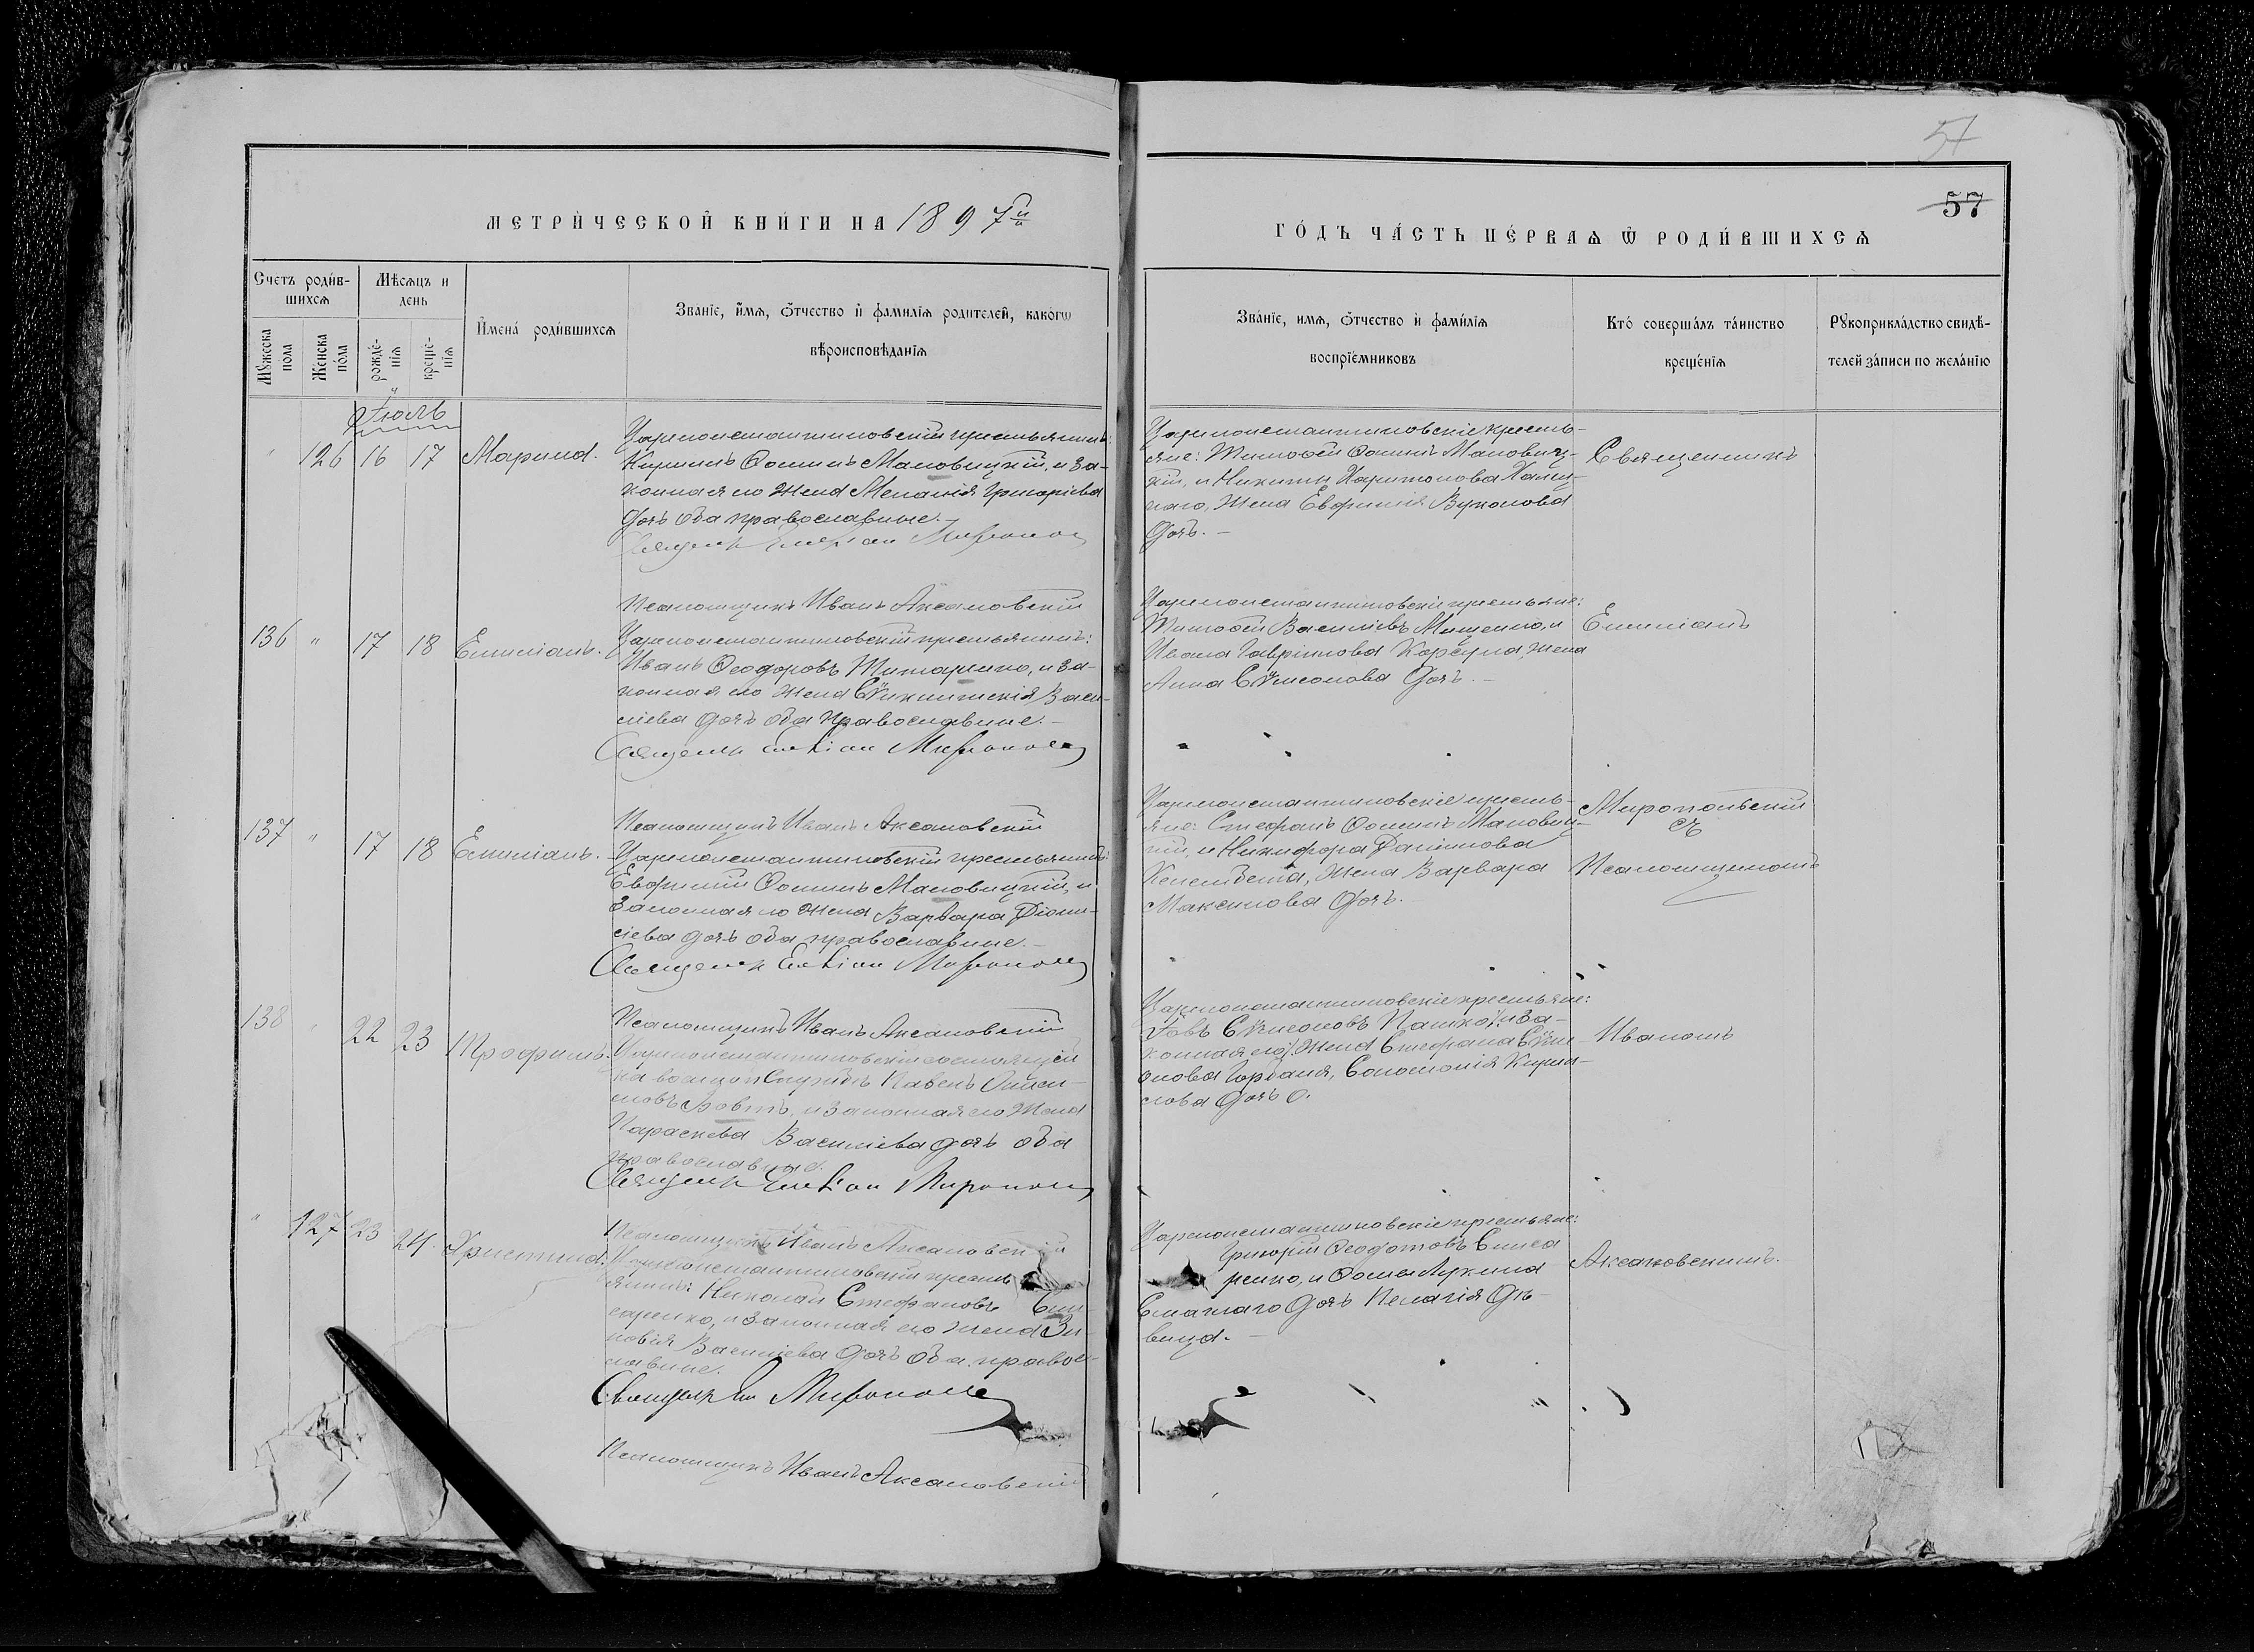 57
57
МЕТРИ́ЧЕСКОЙ КНИ́ГИ НА 1897й
ГО́ДЪ ЧА́СТЬ ПЕ́РВАѦ Ѿ РОДИ́ВШИХСѦ
Счетъ роди́в-
шихсѧ
Мѣсѧцъ и
день
Мꙋжеска
пола
Женска
по́ла
рожде́-
нїѧ
креще́-
нїѧ
И҆мена́ роди́вшихсѧ
Зва́нїе, и҆́мѧ, ѻ҆́тчество и҆ фами́лїѧ родителей, како́гѡ
вѣроисповѣ́данїѧ
Зва́нїе, имѧ, ѻ҆́тчество и҆ фами́лїѧ
воспрїе́мниковъ
Кто́ соверша́лъ та́инство
креще́нїѧ
Рꙋкоприкла́дство свидѣ́-
телей за́писи по жела́нїю
Іюль
" 126 16 17 Марина.
Цареконстантиновскій крестьянинъ:
Кириллъ Ѳоминъ Мановицкій, и за-
конная его жена Меланія Григоріева
дочь оба православные.
Цареконстантиновскіе кресть-
яне: Тимоѳей Ѳоминъ Мановиц-
кій, и Никиты Харитонова
жена Евфимія Вуколова
дочь.
Священникъ
Псаломщикъ Иванъ Аксановскій
136 " 17 18 Емиліанъ.
Цареконстантиновскій крестьянинъ:
Иванъ Ѳеодоровъ Титаренко, и за-
конная его жена Сѵнклитикія Васи-
ліева дочь оба православные.
Цареконстантиновскіе крестьяне:
Тимоѳей Василіевъ Мищенко, и
Ивана Гавріилова Корсуна, жена
Анна Сѵмеонова дочь.
Емиліанъ
137 " 17 18 Емиліанъ.
Псаломщикъ Иванъ Аксановскій
Цареконстантиновскій крестьянинъ:
Евфимій Ѳоминъ Мановицкій, и
законная его жена Варвара Діони-
сіева дочь оба православные.
Цареконстантиновскіе кресть-
яне: Стефанъ Ѳоминъ Мановиц-
кій, и Никифора Даніилова
жена Варвара
Максимова дочь.
Миропольскій
съ
Псаломщикомъ
138 " 22 23 Трофимъ.
Псаломщикъ Иванъ Аксановскій
Цареконстантиновскій состоящій
на военной службѣ Павелъ
и законная его жена
Параскева Василіева дочь оба
православные.
Цареконстантиновскіе крестьяне:
Іовъ Сѵмеоновъ Пашко, и за-
конная его жена Стефана Сѵме-
онова Горбаня, Соломонія Кирил-
лова дочь.
Иваномъ
" 127 23 24 Христина.
Псаломщикъ Иванъ Аксановскій
Цареконстантиновскій кресть-
янинъ: Николай Стефановъ Сли-
саренко, и законная его жена Зи-
новія Василіева дочь оба правос-
лавные.
Цареконстантиновскіе крестьяне:
Григорій Ѳеодотовъ Слиса
ренко, и Ѳомы Лукина
Смаглаго дочь Пелагія дѣ-
вица.
Аксановскимъ.
Псаломщикъ Иванъ Аксановскій